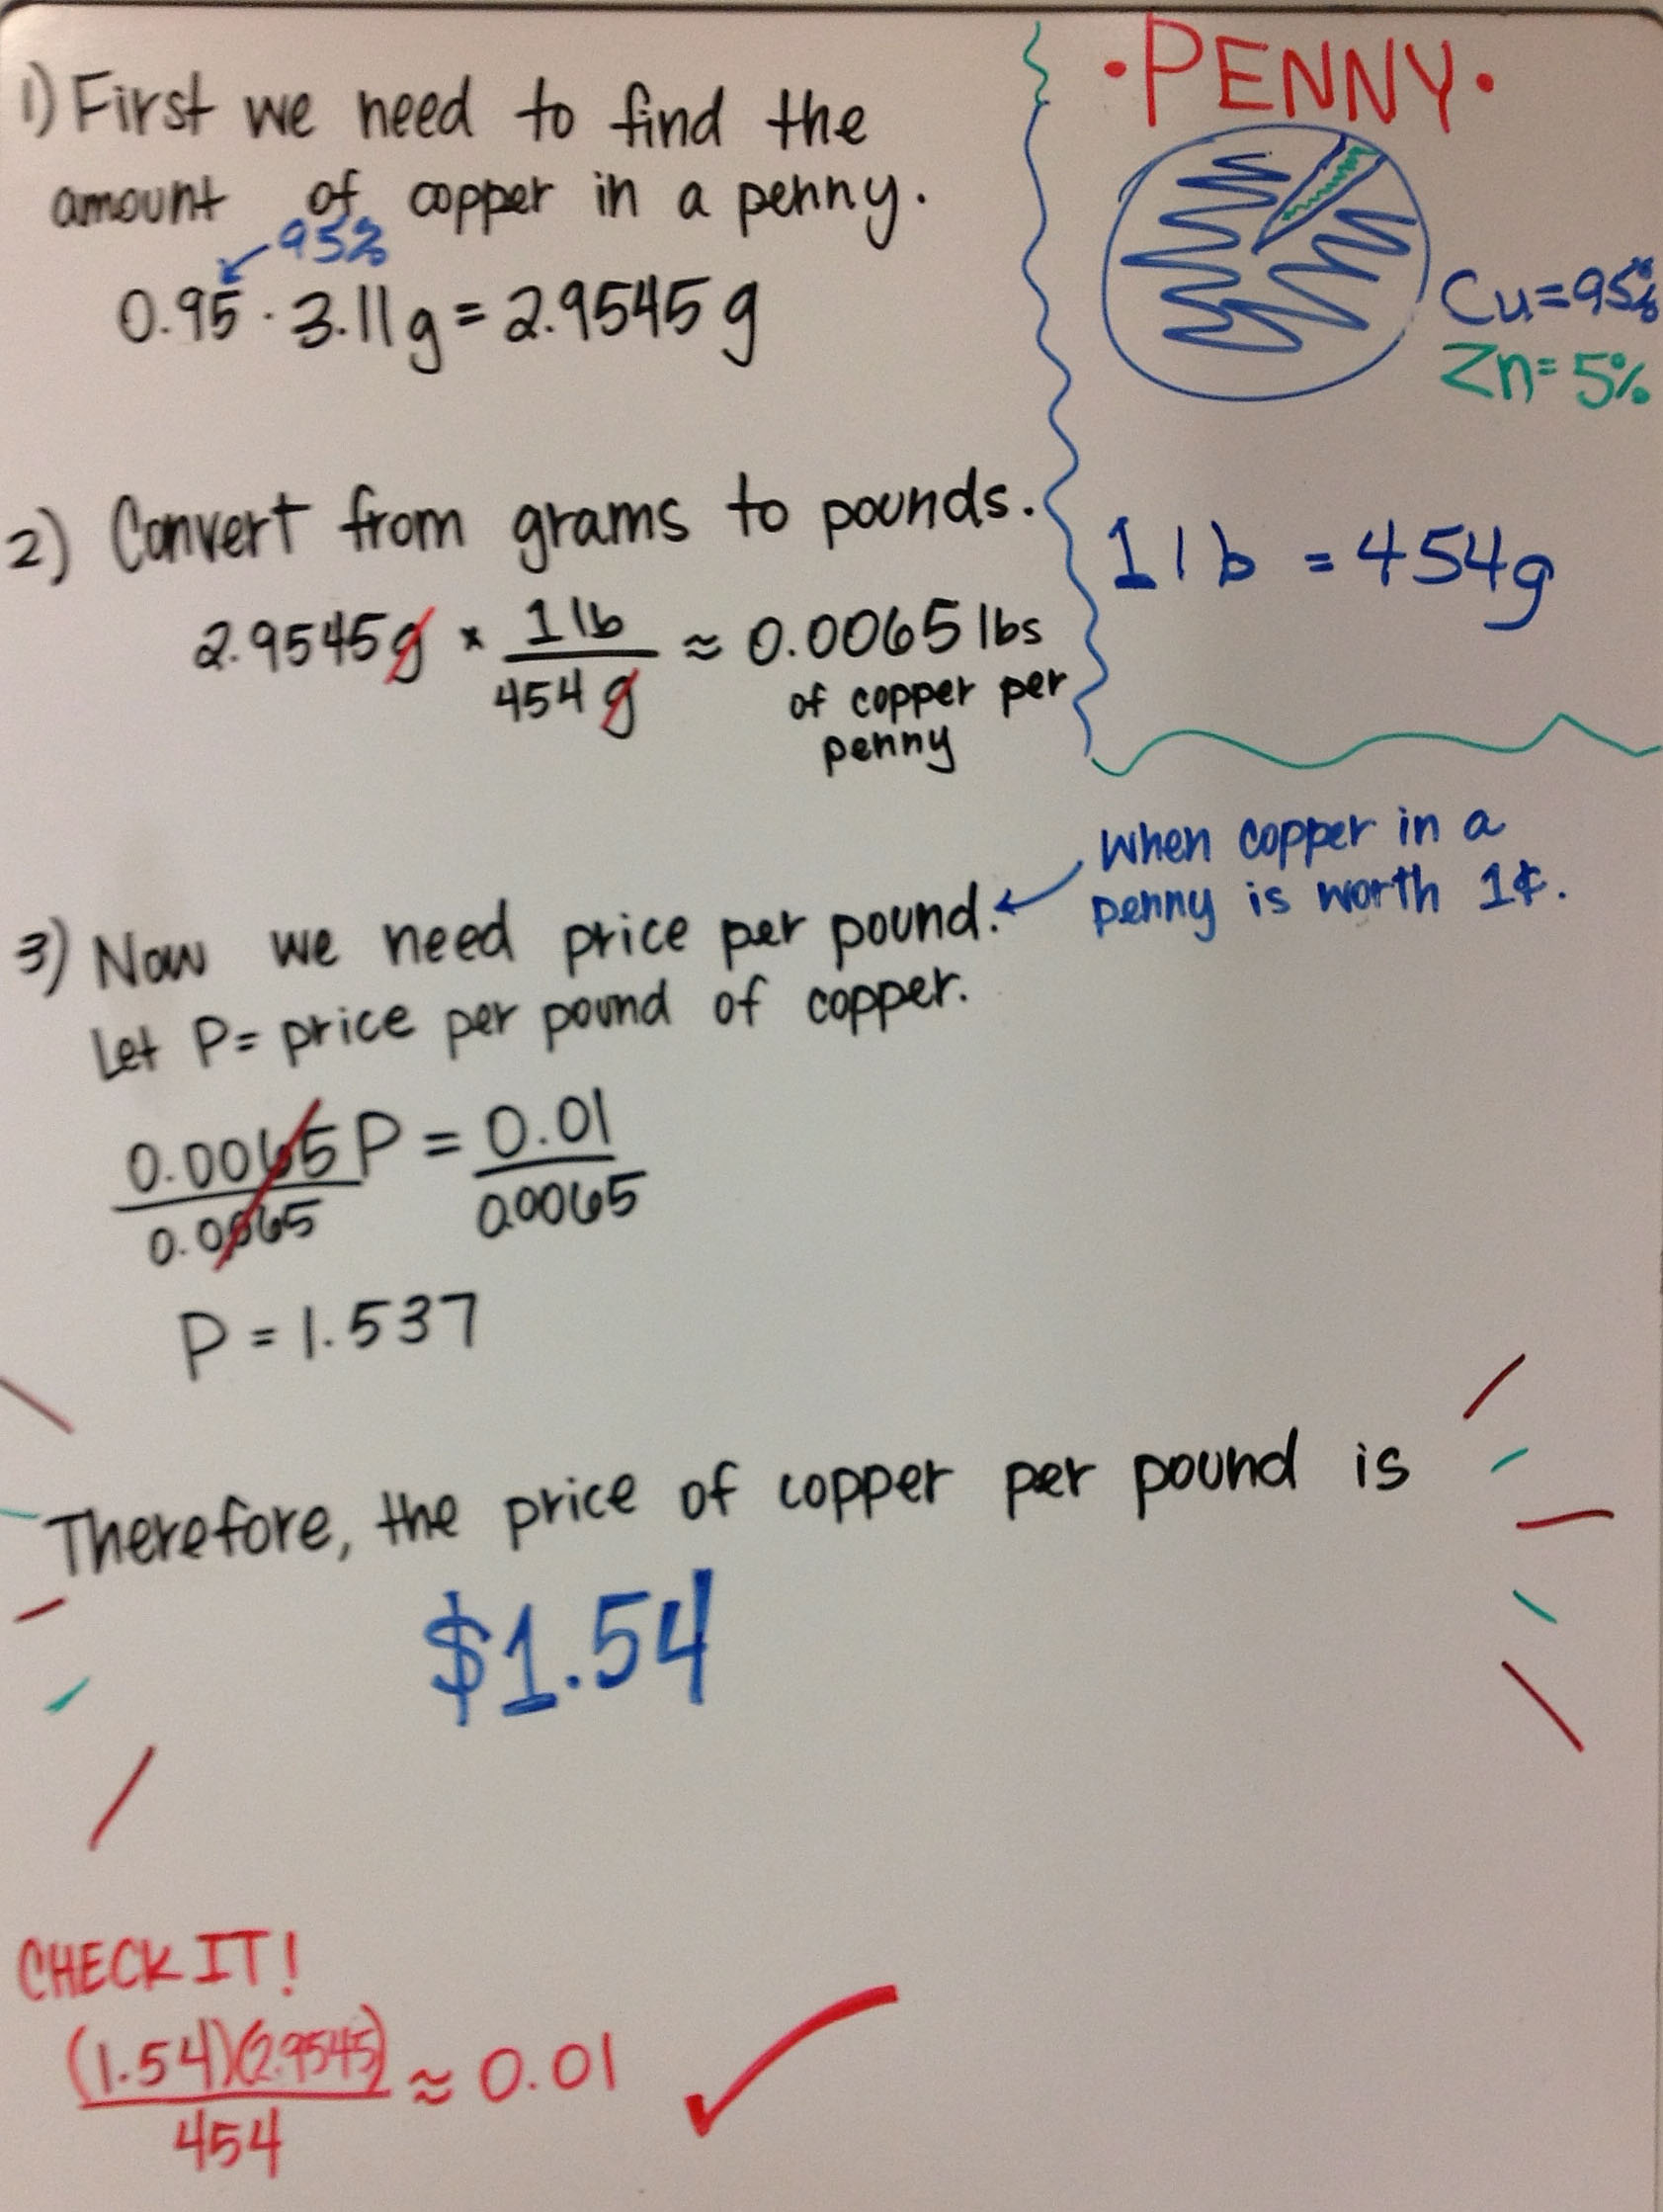 1) First we need to find the
amount of copper in a penny.
95%
0.95 · 3.11g = 2.9545 g
• PENNY •
Cu=95%
Zn=5%
2) Convert from grams to pounds.
2.9545g × 1 lb / 454 g ≈ 0.0065 lbs
of copper per
penny
1 lb = 454g
3) Now we need price per pound.
When copper in a
penny is worth 1¢.
Let P= price per pound of copper.
0.0065P / 0.0065 = 0.01 / 0.0065
P = 1.537
Therefore, the price of copper per pound is
$1.54
CHECK IT!
(1.54)(2.9545) / 454 ≈ 0.01 ✓